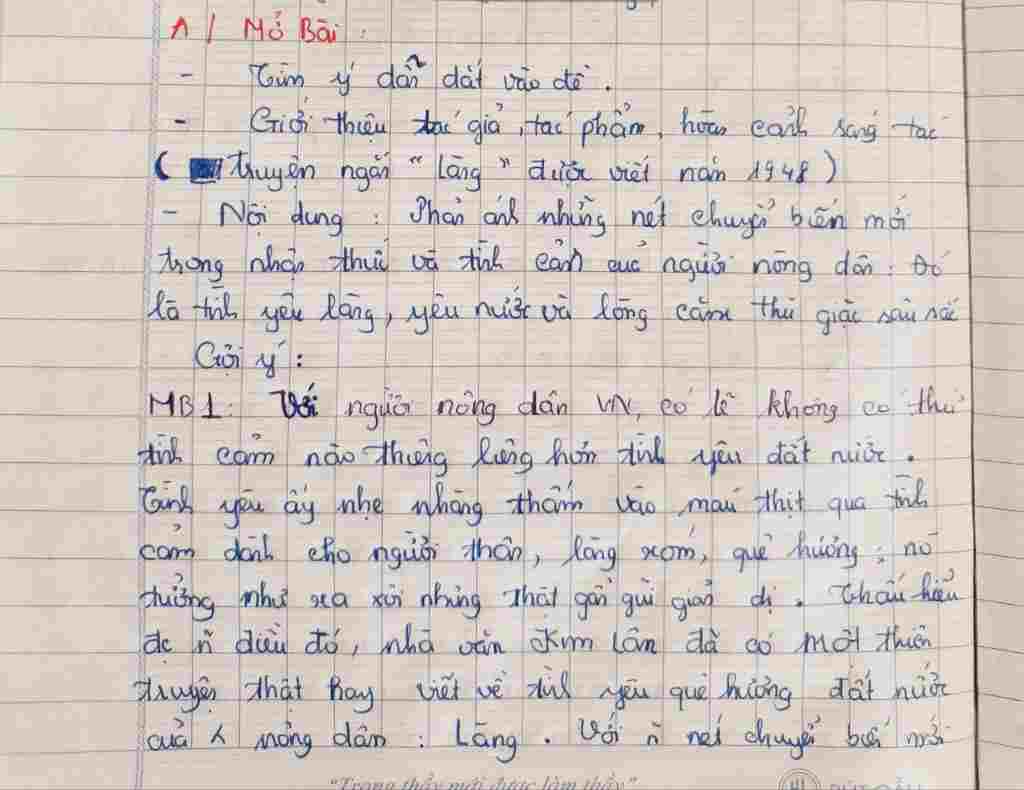 A / Mở Bài :
- Tìm ý dẫn dắt vào đề .
- Giới thiệu tác giả , tác phẩm , hoàn cảnh sáng tác
( truyện ngắn " Làng " được viết năm 1948 )
- Nội dung : Phản ánh những nét chuyển biến mới
trong nhận thức và tình cảm của người nông dân : Đó
là tình yêu làng , yêu nước và lòng căm thù giặc sâu sắc
Gợi ý :
MB1 : Với người nông dân VN, có lẽ không có thứ
tình cảm nào thiêng liêng hơn tình yêu đất nước .
Tình yêu ấy nhẹ nhàng thấm vào máu thịt qua tình
cảm dành cho người thân , làng xóm , quê hương ; nó
tưởng như xa xôi nhưng thật gần gũi giản dị . Thấu hiểu
đc ~n điều đó , nhà văn Kim Lân đã có một thiên
truyện thật hay viết về tình yêu quê hương đất nước
của nông dân : Làng . Với ~n nét chuyển biến mới
"Trang thầy mới được làm thầy"